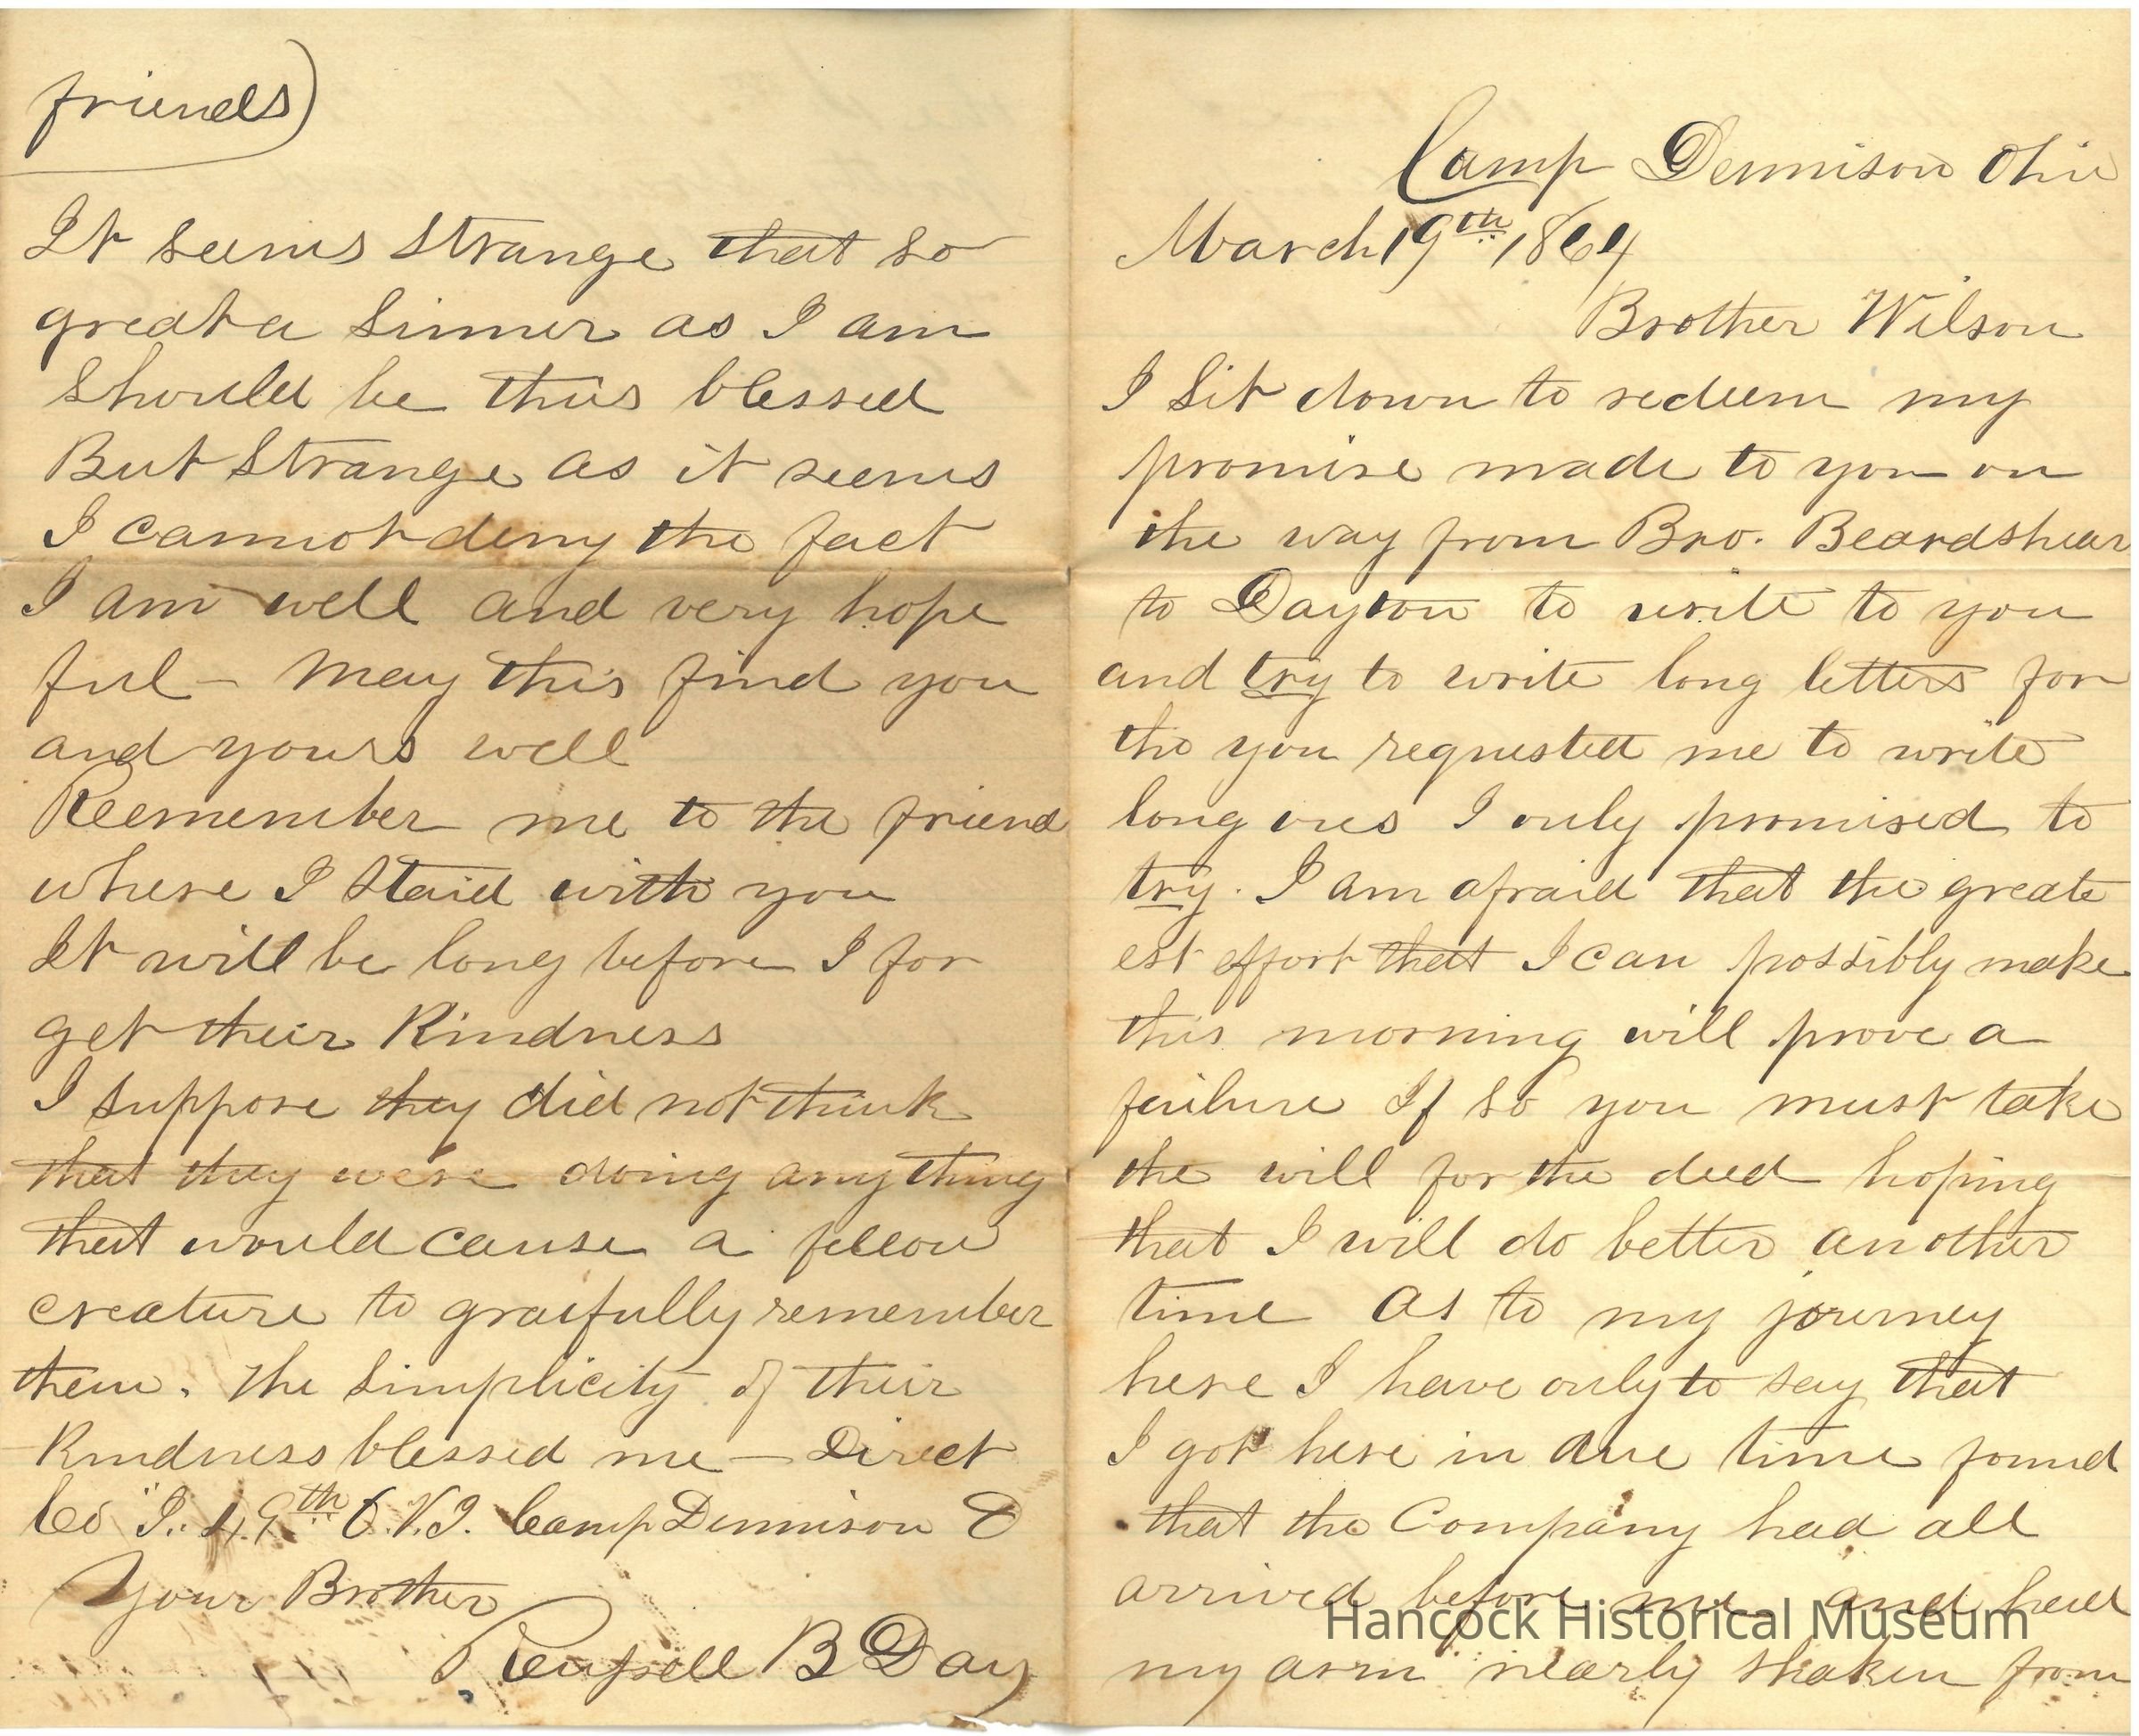 friends)
It seems strange that so
great a sinner as I am
should be thus blessed
But strange as it seems
I cannot deny the fact
I am well and very hope
ful - May this find you
and yours well
Reemember me to the friend
where I staid with you
It will be long before I for
get their Kindness
I suppose they did not think
that they were doing any thing
that would cause a fellow
creature to graifully remember
them. The simplicity of their
Kindness blessed me - Direct
Co "I." 49th O.V.I. Camp Dennison O
Your Brother
B Day
Camp Dennison Ohio
March 19th, 1864
Brother Wilson
I sit down to redeem my
promise made to you on
the way from Bro. Beardshear
to Dayton to write to you
and try to write long letters for
tho you requested me to write
long ones I only promised to
try. I am afraid that the greate
est effort that I can possibly make
this morning will prove a
failure If so you must take
the will for the deed hoping
that I will do better another
time As to my journey
here I have only to say that
I got here in due time found
that the Company had all
arrived before me and had
my arm nearly shaken from
Hancock Historical Museum